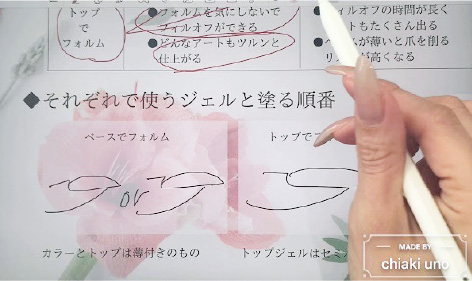 トップ
で
フォルム
●フォルムを気にしないで
フィルオフができる
●どんなアートもツルンと
仕上がる
ィルオフの時間が長く
ートもたくさん出る
ースが薄いと爪を削る
リ
が高くなる
◆それぞれで使うジェルと塗る順番
ベースでフォルム
トップでフ
or
カラーとトップは薄付きのもの
トップジェルはセミ
MADE BY
chiaki uno